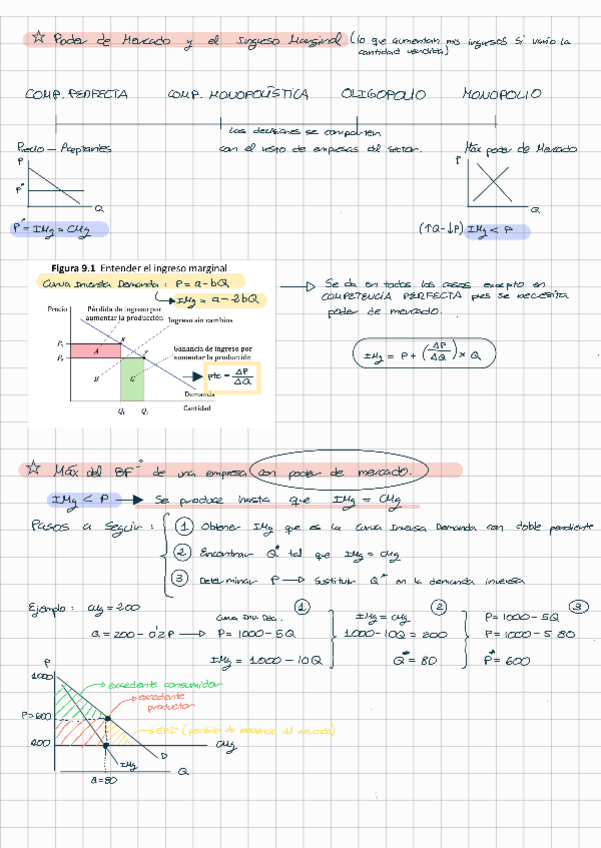 ☆ Poder de Mercado y el Ingreso Marginal (lo que aumentan mis ingresos si varío la
cantidad vendida)
COMP. PERFECTA COMP. MONOPOLÍSTICA OLIGOPOLIO MONOPOLIO
Las decisiones se comparten
Precio-Aceptantes con el resto de empresas del sector. Máx poder de Mercado
P P
P*
Q Q
P* = IMg = CMg (↑Q-↓P) IMg < P
Figura 9.1 Entender el ingreso marginal
Curva Inversa Demanda: P = a-bQ
→ IMg = a-2bQ
→ Se da en todos los casos excepto en
COMPETENCIA PERFECTA pues se necesita
poder de mercado.
IMg = P + (ΔP/ΔQ) × Q
Precio Pérdida de ingreso por
aumentar la producción Ingreso sin cambios
P₁ A x
P₂ y
Ganancia de ingreso por
aumentar la producción
B C
→ pte = ΔP/ΔQ
Demanda
Q₁ Q₂ Cantidad
☆ Máx del BFº de una empresa con poder de mercado.
IMg < P → Se produce hasta que IMg = CMg
Pasos a seguir:
① Obtener IMg que es la Curva Inversa Demanda con doble pendiente
② Encontrar Q* tal que IMg = CMg
③ Determinar P → Sustituir Q* en la demanda inversa
Ejemplo: CMg = 200
Q = 200-0'2P → P = 1000-5Q
IMg = 1000-10Q
①
IMg = CMg ②
1000-10Q = 200
Q* = 80
P = 1000-5Q ③
P = 1000-5·80
P* = 600
P
1000
→ excedente consumidor
→ excedente
productor
P=600
200 CMg
IMg D
Q
Q=80